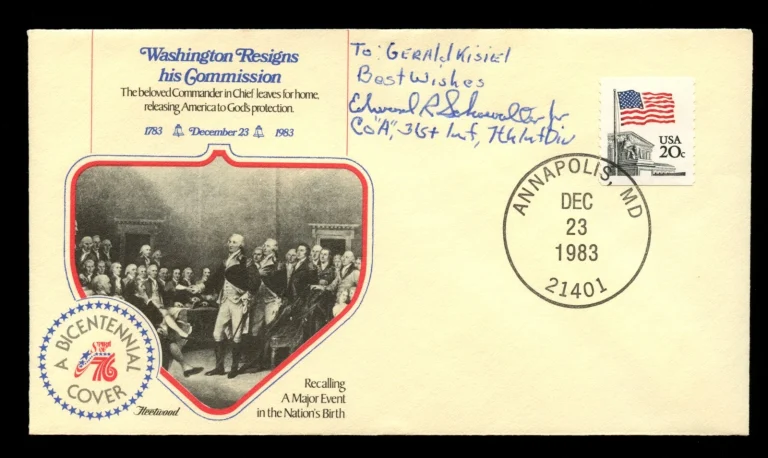 Washington Resigns
his Commission
The beloved Commander in Chief leaves for home,
releasing America to God's protection.
1783 December 23 1983
To: GERALD KISIEL
Best Wishes
Edward R Schowalter Jr
Co "A", 31st Inf, 7th Inf Div
USA
20c
ANNAPOLIS, MD
DEC
23
1983
21401
A BICENTENNIAL
SPIRIT OF
76
COVER
Fleetwood
Recalling
A Major Event
in the Nation's Birth